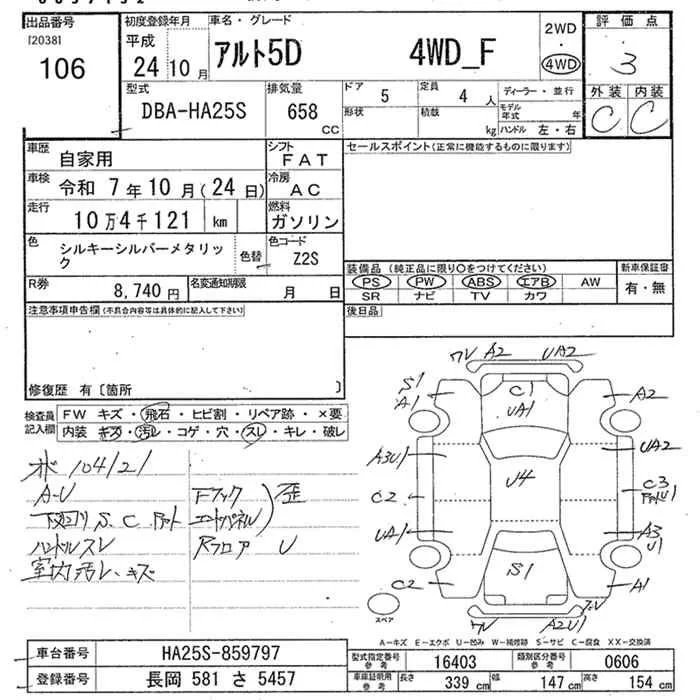 出品番号 初度登録年月 車名・グレード 2WD・4WD 評価点
[2038]
106
平成
24年10月
アルト5D 4WD_F
3
型式 排気量 ドア 定員 ディーラー・並行 外装 内装
DBA-HA25S 658 CC 5 4人 C C
形状 積載 kg モデル年式 年
ハンドル 左・右
車歴 自家用 シフト FAT セールスポイント(正常に機能するものに限ります)
車検 令和 7年10月(24日) 冷房 AC
走行 10万4千121 km 燃料 ガソリン
色 シルキーシルバーメタリック 色替 色コード Z2S
装備品 (純正品に限り○をつけてください) 新車保証書
PS PW ABS エアB AW 有・無
SR ナビ TV カワ
R券 8,740円 名変通知期限 月 日
注意事項申告欄(不具合内容等は具体的に記入して下さい) 後日品
修復歴 有〔箇所 〕
検査員記入欄 FW キズ・飛石・ヒビ割・リペア跡・×要
内装 キズ・汚レ・コゲ・穴・スレ・キレ・破レ
ボ 104121
A-U Fフック 歪
下回り S、C
ハンドルスレ Rフロア U
室内汚レ、キズ
ワレ A2 UA2
S1 A1 C1 UA1 A2
A3U1 U4 UA2
C2 C3
UA1 A3 U1
C2 S1 A1
スペア ワレ A2U1 ワレ
A-キズ E-エクボ U-凹み W-補修跡 S-サビ C-腐食 XX-交換済
車台番号 HA25S-859797 型式指定番号 参考 16403 類別区分番号 参考 0606
登録番号 長岡 581 さ 5457 車庫証明用 参考 長さ 339 cm 幅 147 cm 高さ 154 cm